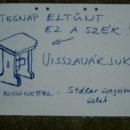 TEGNAP ELTŰNT
EZ A SZÉK
VISSZAVÁRJUK
KÖSZÖNETTEL
- Stüller üvegezés
üzlet